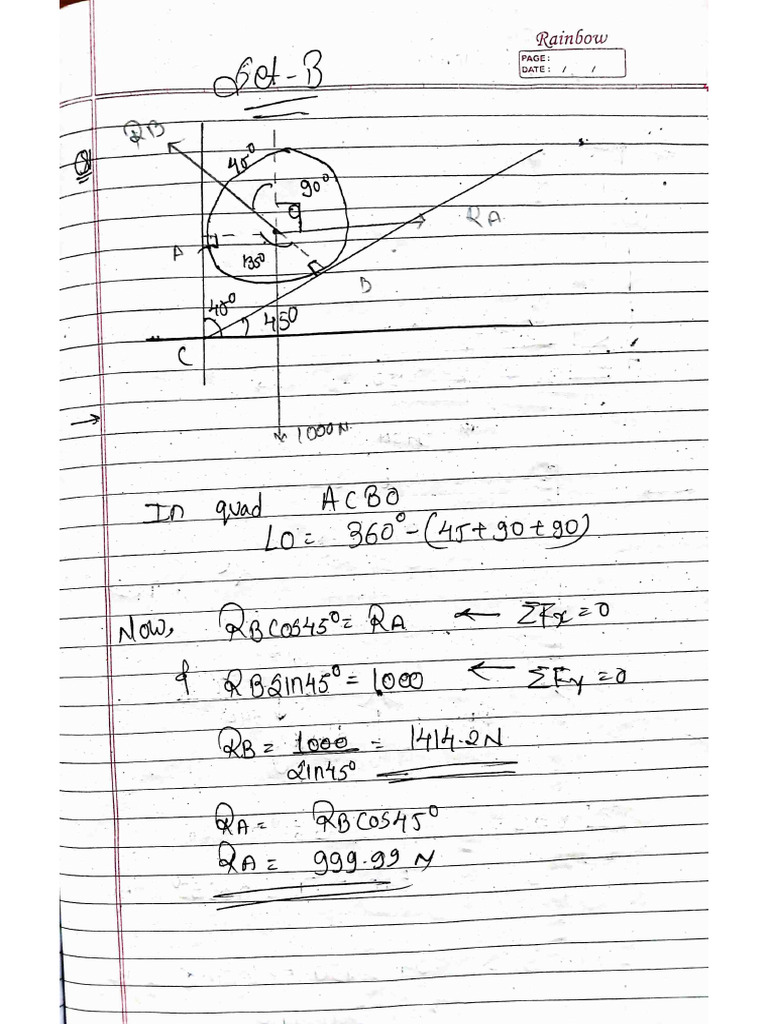 Rainbow
PAGE:
DATE: / /
Set-B
Q
RB
45°
90°
O
RA
A
135°
B
45°
45°
C
→
1000N
In quad ACBO
LO = 360° - (45+90+90)
Now, RBcos45° = RA ← ΣFx=0
& RBsin45° = 1000 ← ΣFy=0
RB = 1000/sin45° = 1414.2N
RA = RBcos45°
RA = 999.99 N